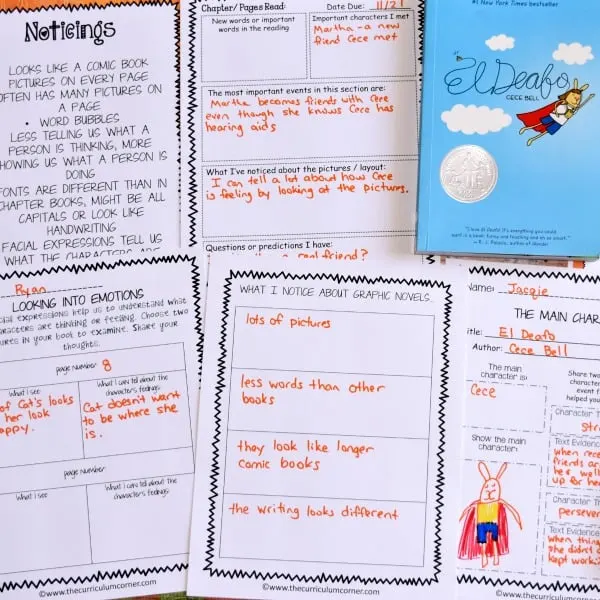 Noticings
LOOKS LIKE A COMIC BOOK
PICTURES ON EVERY PAGE
OFTEN HAS MANY PICTURES ON
A PAGE
• WORD BUBBLES
LESS TELLING US WHAT A
PERSON IS THINKING, MORE
SHOWING US WHAT A PERSON IS
DOING
FONTS ARE DIFFERENT THAN IN
CHAPTER BOOKS, MIGHT BE ALL
CAPITALS OR LOOK LIKE
HANDWRITING
FACIAL EXPRESSIONS TELL US
WHAT THE CHARACTERS ARE
Chapter/ Pages Read:
Due Date: 11/21
New words or important
words in the reading
Important characters I met
Martha - a new
friend Cece met
The most important events in this section are:
Martha becomes friends with Cece
even though she knows Cece has
hearing aids
What I've noticed about the pictures / layout:
I can tell a lot about how Cece
is feeling by looking at the pictures.
Questions or predictions I have:
real friend?
#1 New York Times bestseller
El Deafo
CECE BELL
R. J. Palacio, author of Wonder
Ryan
LOOKING INTO EMOTIONS
facial expressions help us to understand what
characters are thinking or feeling. Choose two
pictures in your book to examine. Share your
thoughts.
page Number 8
What I see
What I can tell about the
character's feelings:
of Cat's looks
her look
Cat doesn't want
to be where she
is.
page Number
What I see
What I can tell about the
character's feelings:
©www.thecurriculumcorner.com
WHAT I NOTICE ABOUT GRAPHIC NOVELS...
lots of pictures
less words than other
books
they look like longer
comic books
the writing looks different
©www.thecurriculumcorner.com
Name: Jacqie
THE MAIN CHAR
Title: El Deafo
Author: Cece Bell
The main
character is:
Cece
Share two
character
event f
helped you
Character T
Text Evidence
when rece
friends are
her well
up for he
Show the main
character:
Character T
persever
Text Evidence
when thing
she didn't
kept work
©www.thecurriculumcorner.com